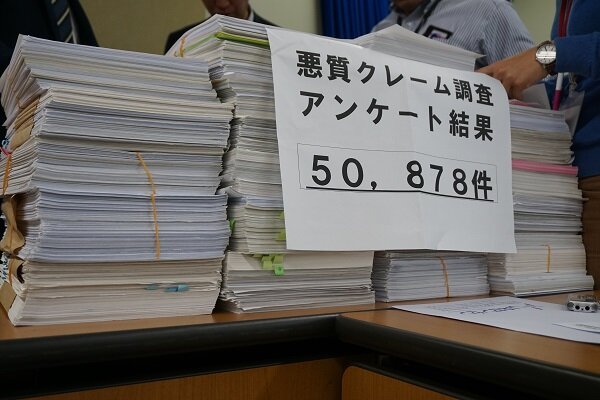 悪質クレーム調査
アンケート結果
50，878件